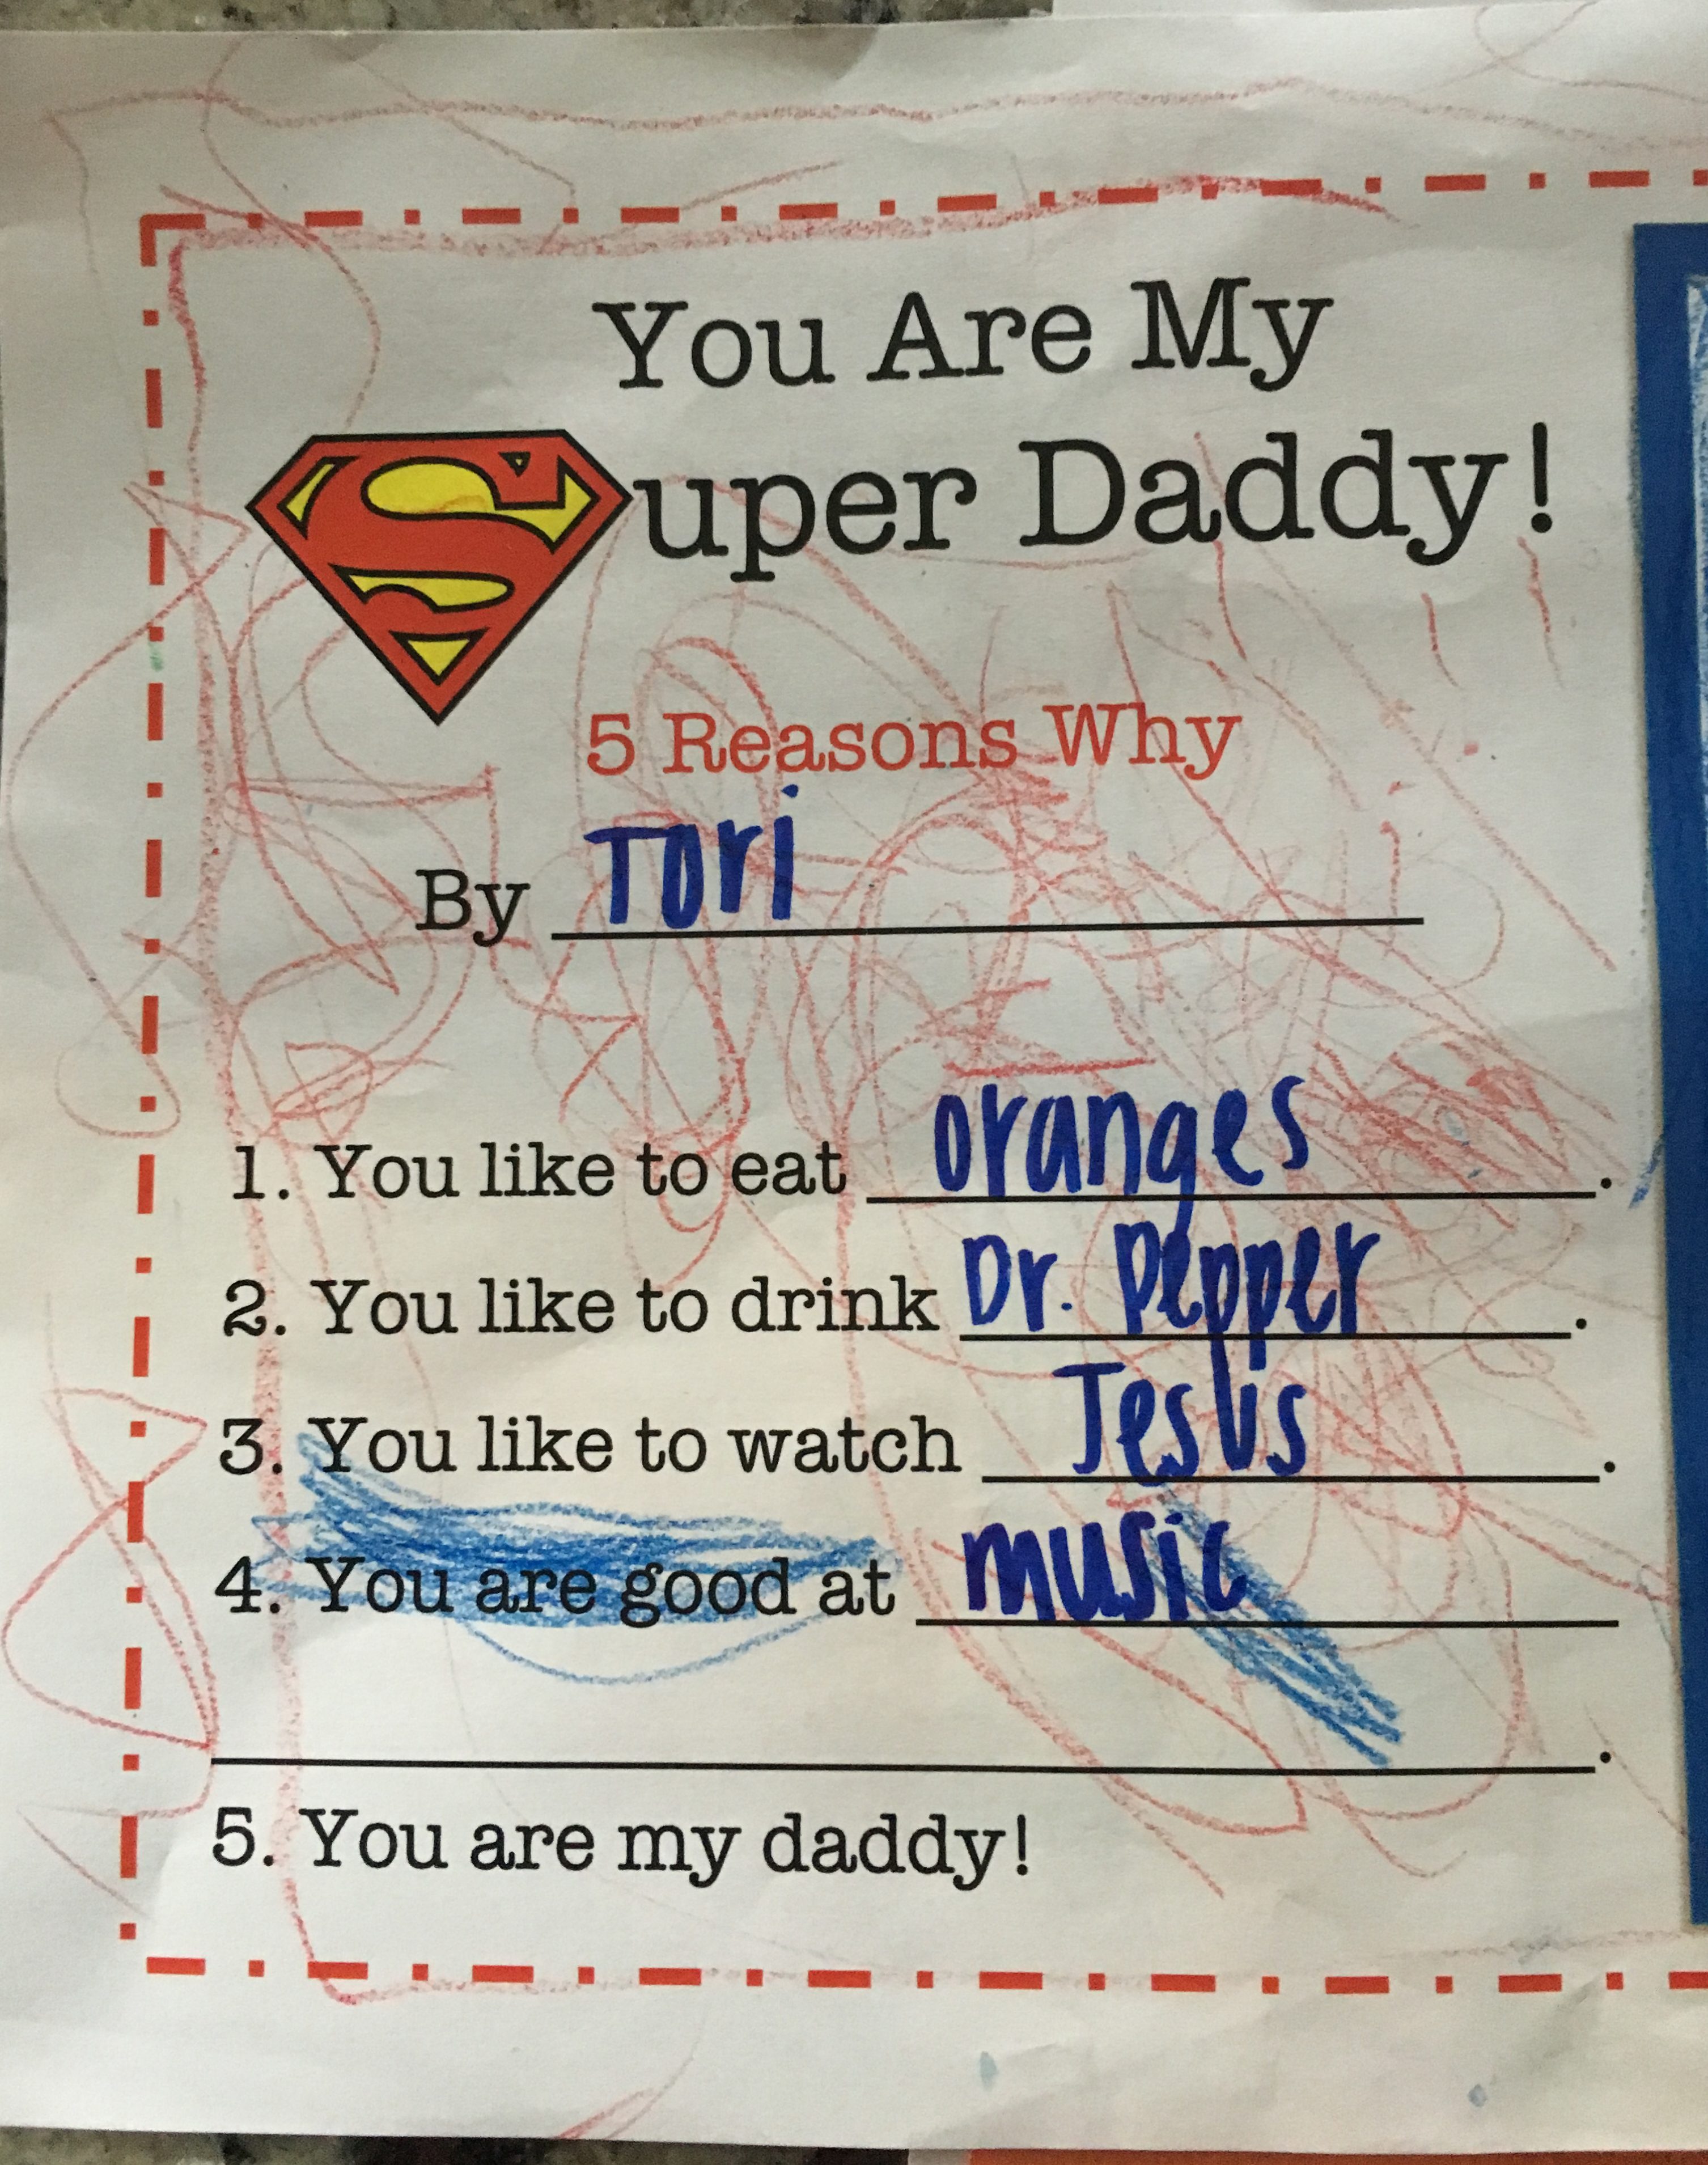 You Are My
Super Daddy!
5 Reasons Why
By Tori
1. You like to eat oranges.
2. You like to drink Dr. Pepper.
3. You like to watch Jesus.
4. You are good at music
.
5. You are my daddy!